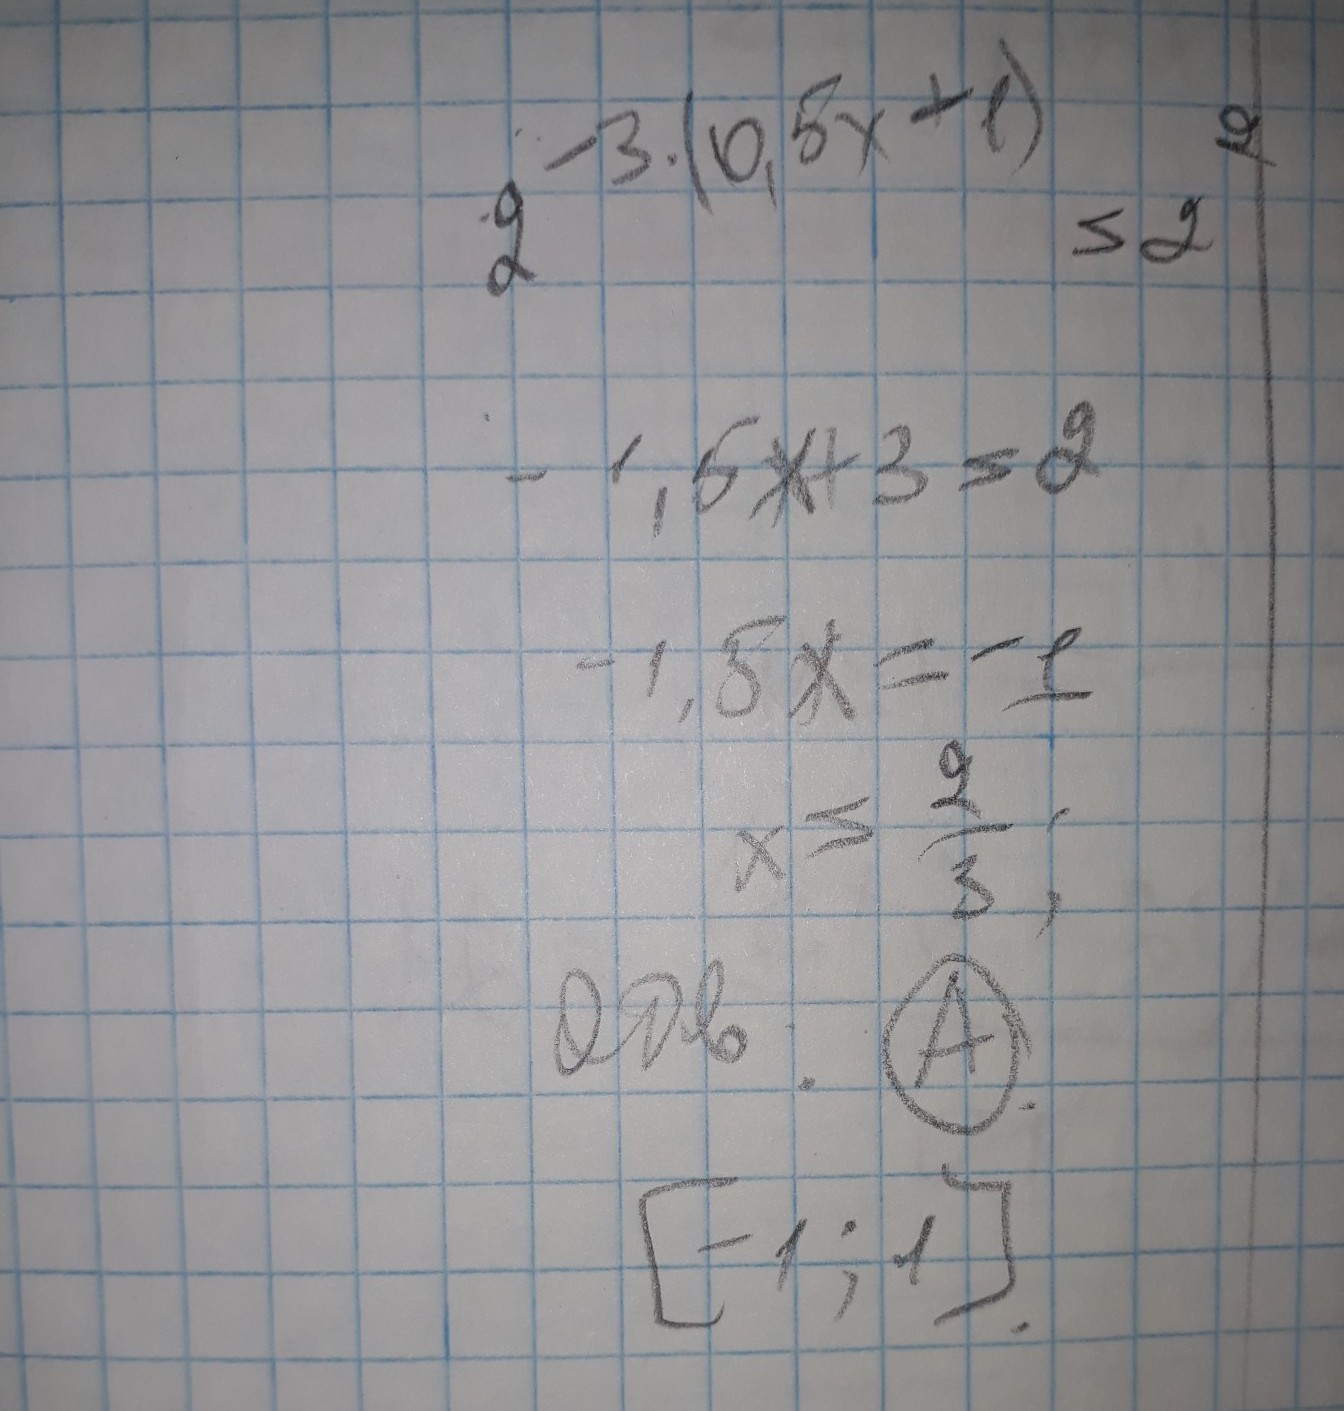 2^{-3·(0,5x+1)} = 2^2
-1,5x+3=2
-1,5x=-1
x = 2/3;
Отв. А.
[-1;1].